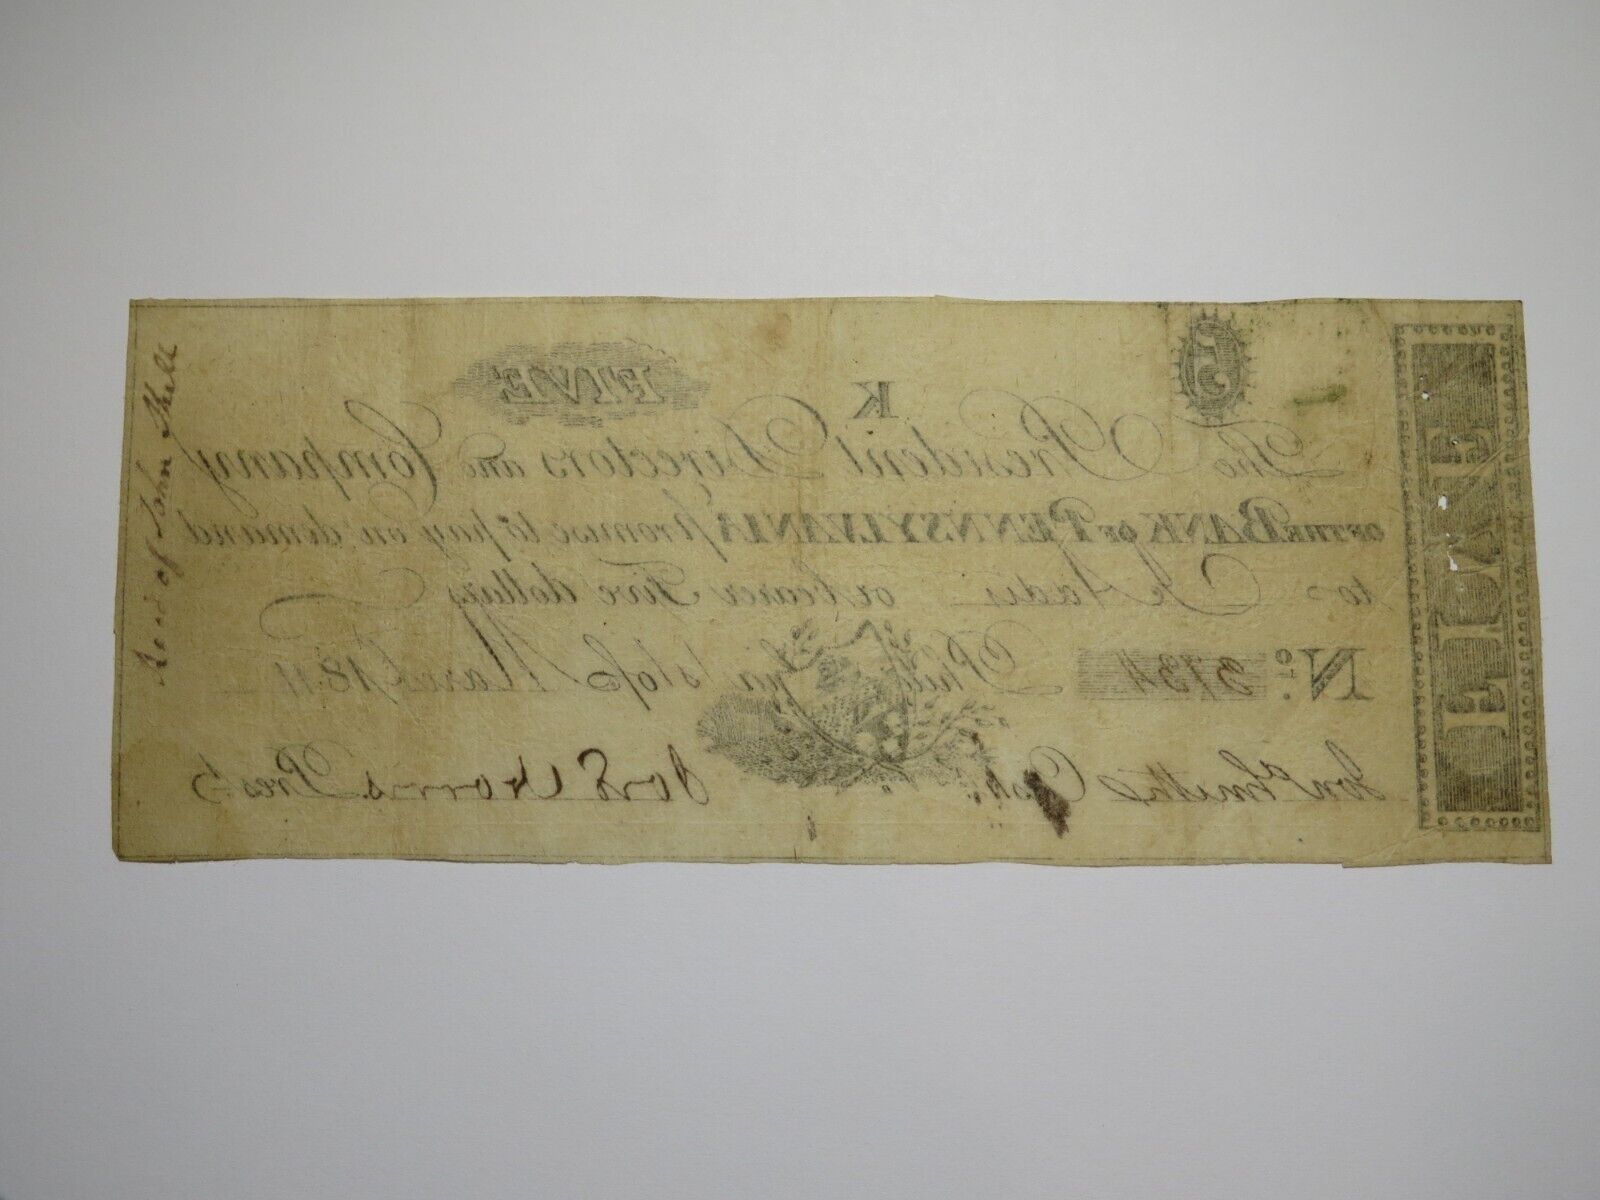 5
K
FIVE
The President Directors and Company
OF THE BANK OF PENNSYLVANIA promise to pay on demand
to or bearer Five dollars
No. 3734 Phila. 1st of March 1811
Cashr. Jos S Norris Prest.
FIVE
of John Shell